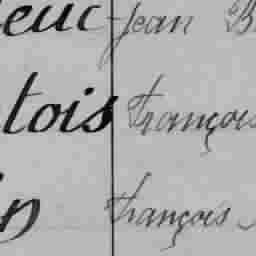 leuc Jean B
tois François
in François